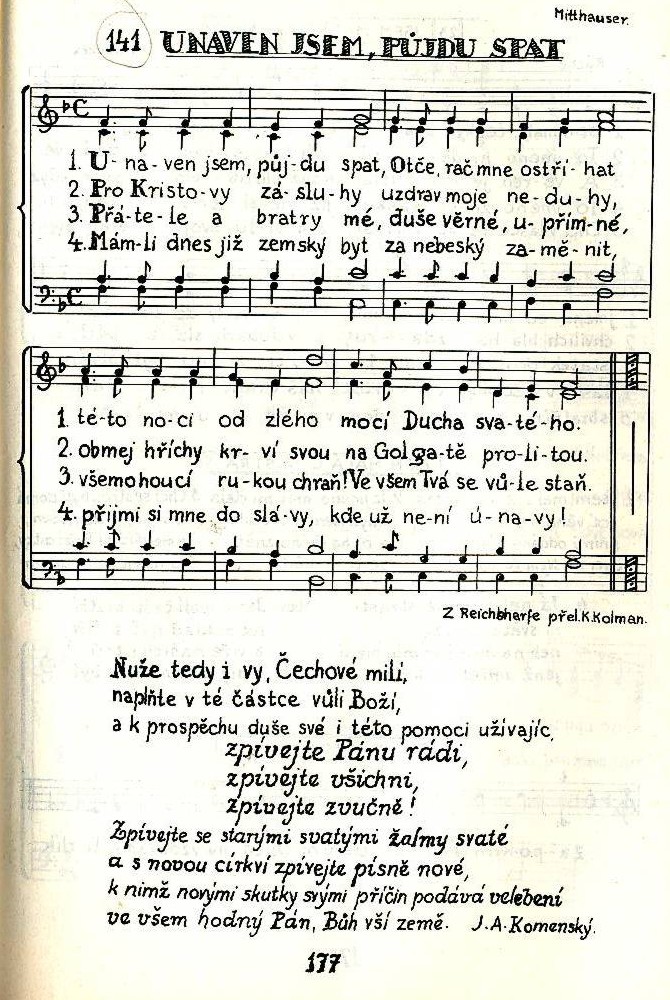 Mitthauser.
141 UNAVEN JSEM, PŮJDU SPAT
1. U- na- ven jsem, půj- du spat, Otče, rač mne ostří- hat
2. Pro Kristo- vy zá- slu- hy uzdrav moje ne- du- hy,
3. Přá- te- le a bratry mé, duše věrné, u- přím- né,
4. Mám-li dnes již zemský byt za nebeský za- mě- nit,
1. té- to no- ci od zlého mocí Ducha sva- té- ho.
2. obmej hříchy kr- ví svou na Golga- tě pro- li- tou.
3. všemohoucí ru- kou chraň! Ve všem Tvá se vů- le staň.
4. přijmi si mne do slá- vy, kde už ne- ní ú- na- vy!
Z Reichsharfe přel. K. Kolman.
Nuže tedy i vy, Čechové milí,
naplňte v té částce vůli Boží,
a k prospěchu duše své i této pomoci užívajíc,
zpívejte Pánu rádi,
zpívejte všichni,
zpívejte zvučně!
Zpívejte se starými svatými žalmy svaté
a s novou církví zpívejte písně nové,
k nimž novými skutky svými příčin podává velebení
ve všem hodný Pán, Bůh vší země. J. A. Komenský.
177